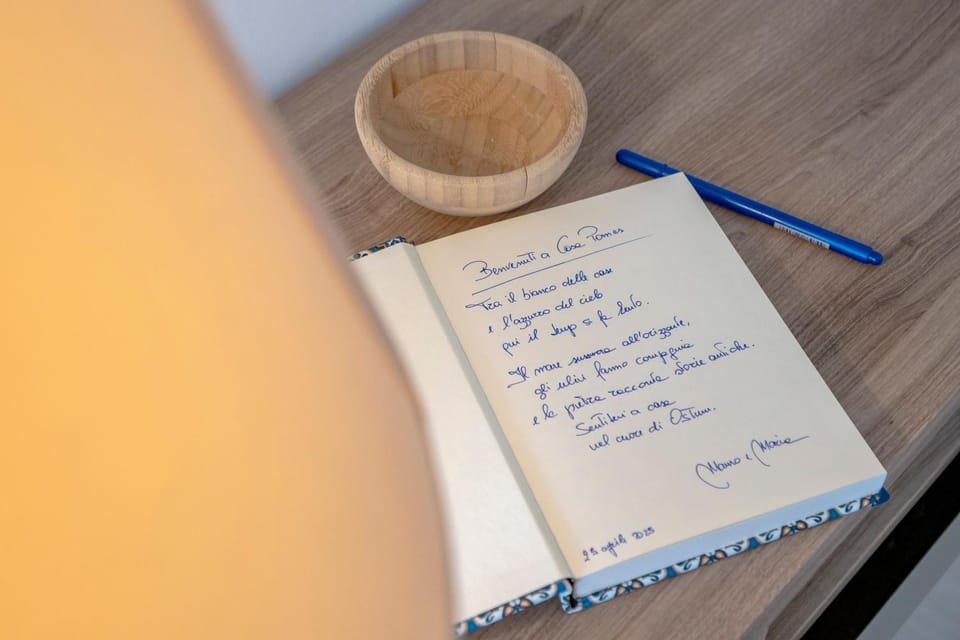 Benvenuti a Casa Pomes
Tra il bianco delle case
e l'azzurro del cielo
qui il tempo si fa lento.
Il mare sussurra all'orizzonte,
gli ulivi fanno compagnia
e le pietre raccontano storie antiche.
Sentitevi a casa
nel cuore di Ostuni.
Mauro e Maria
25 aprile 2025